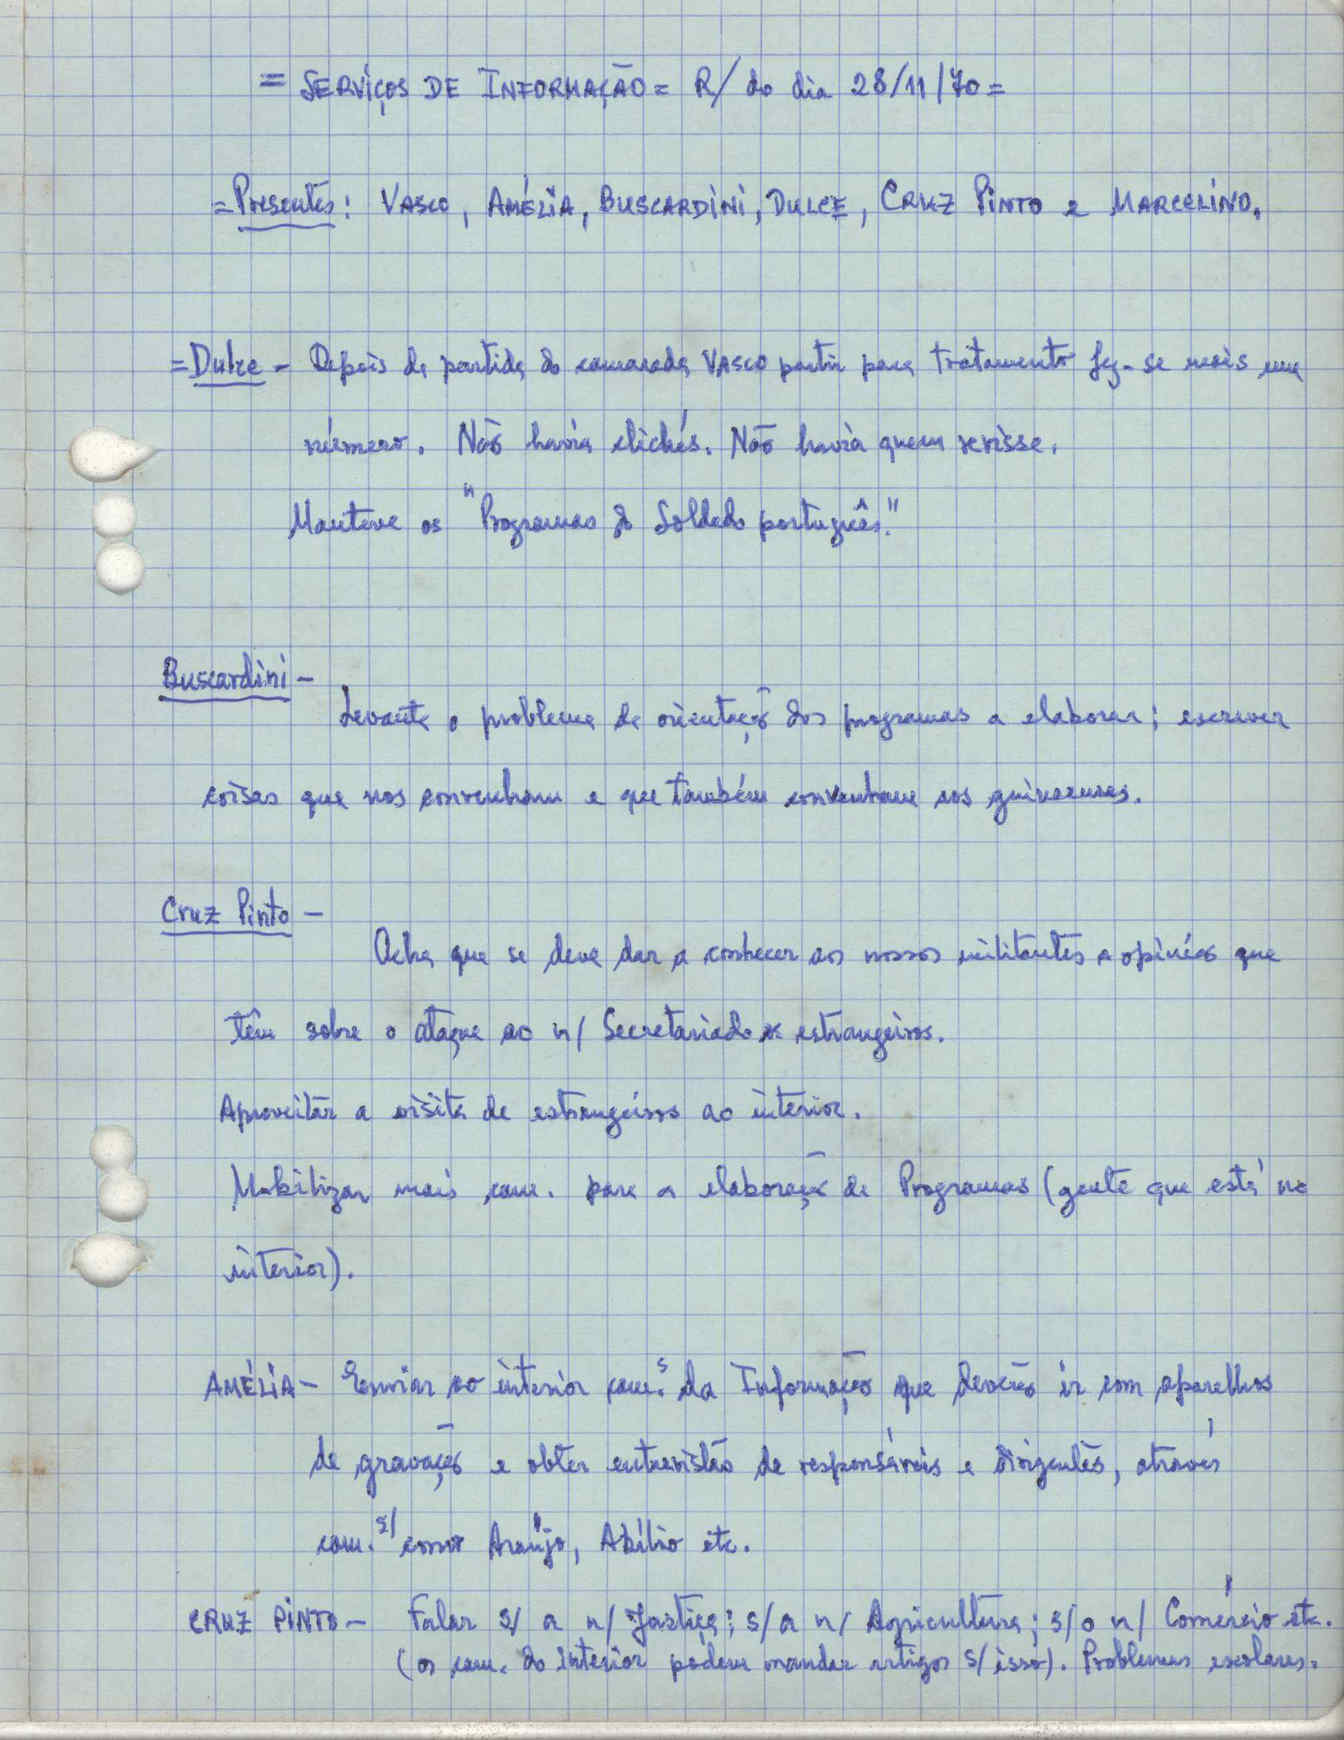 = SERVIÇOS DE INFORMAÇÃO = R/ do dia 28/11/70 =
= Presentes: VASCO, AMÉLIA, BUSCARDINI, DULCE, CRUZ PINTO e MARCELINO.
= Dulce - Depois da partida do camarada VASCO partir para tratamento fez-se mais um
número. Não havia clichés. Não havia quem revisse.
Manteve os "Programas do Soldado português."
Buscardini -
Levanta o problema da orientação dos programas a elaborar; escrever
coisas que nos convenham e que também convenham aos guineenses.
Cruz Pinto -
Acha que se deve dar a conhecer aos nossos militantes a opinião que
têm sobre o ataque ao n/ Secretariado os estrangeiros.
Aproveitar a visita de estrangeiros ao interior.
Mobilizar mais cam. para a elaboração de Programas (gente que está no
interior).
AMÉLIA - Enviar ao interior cam.s da Informação que deverão ir com aparelhos
de gravação e obter entrevistas de responsáveis e dirigentes, através
cam.s/ como Araújo, Abílio etc.
CRUZ PINTO - Falar s/ a n/ Justiça; s/ a n/ Agricultura; s/ o n/ Comércio etc.
(os cam. do interior podem mandar artigos s/ isso). Problemas escolares.